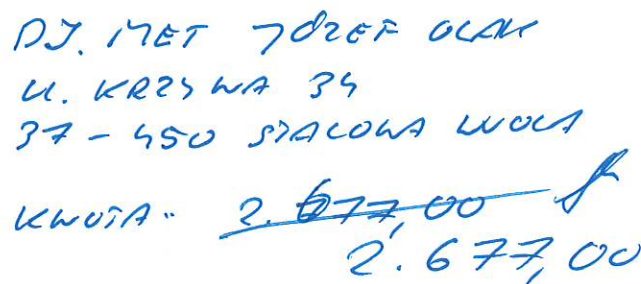 DJ. MET JÓZEF OLAK
UL. KRZYWA 34
37-450 STALOWA WOLA
KWOTA - 2.677,00
2.677,00